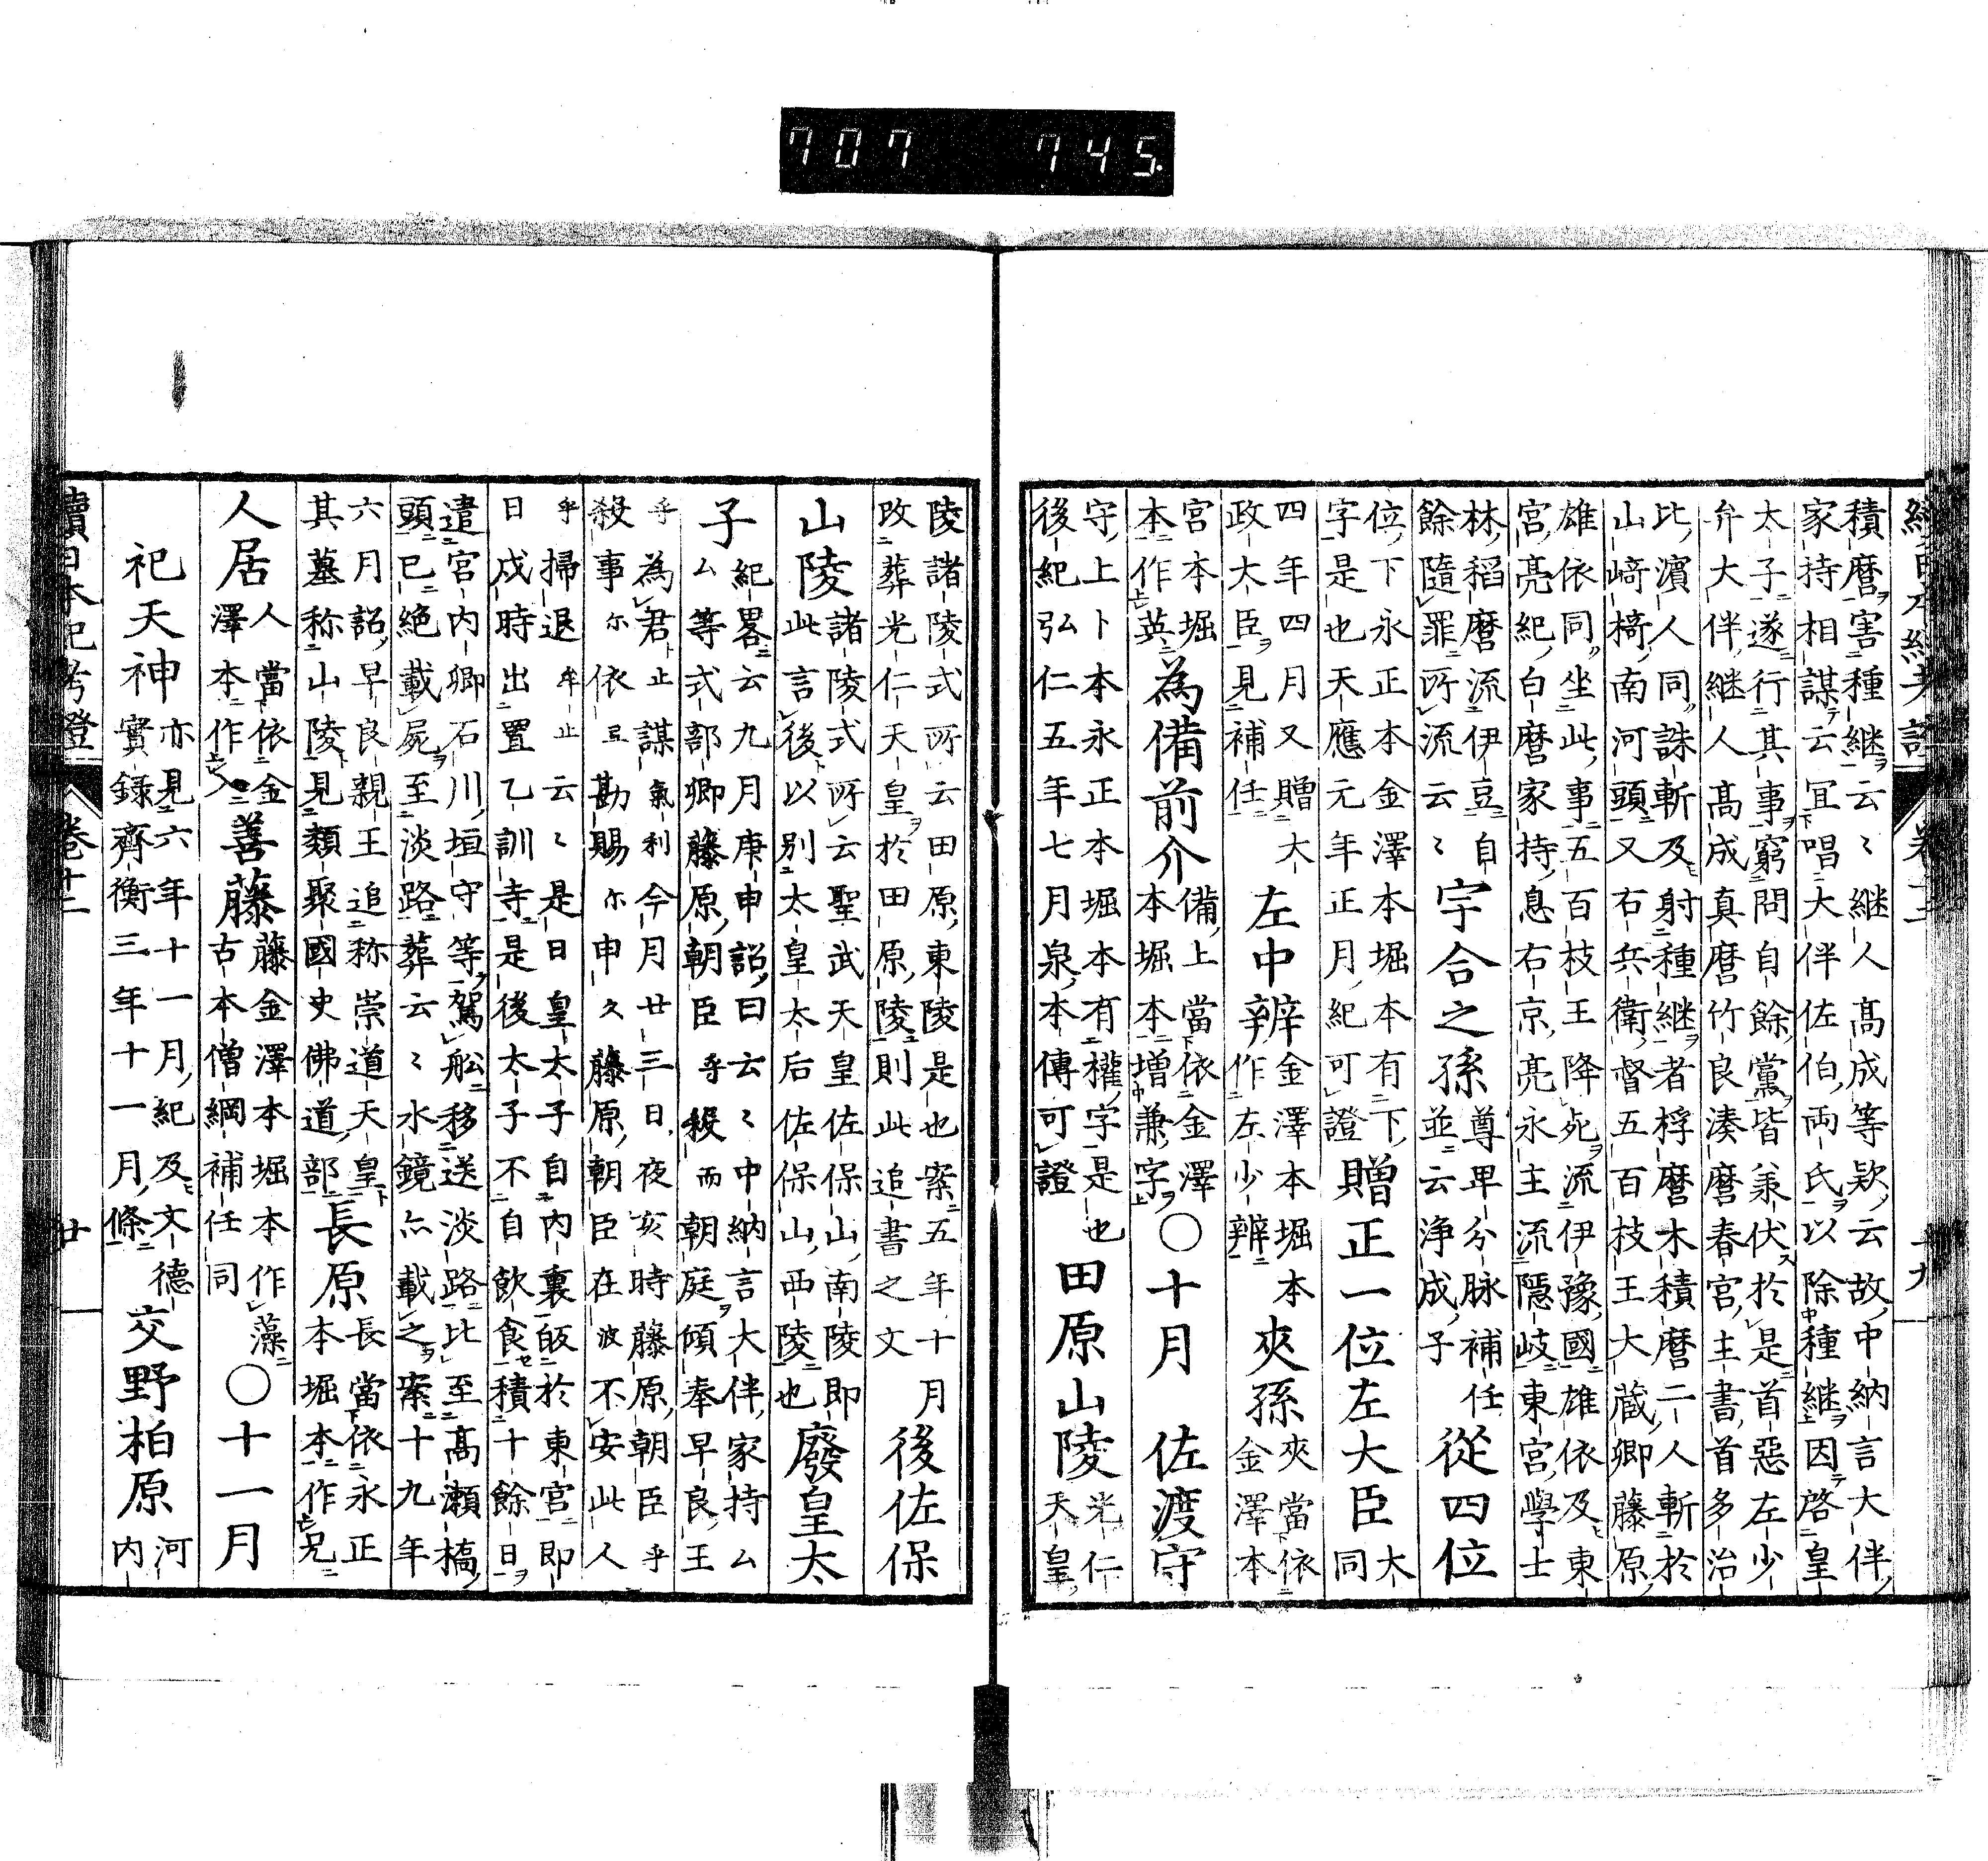 707 745.
積麿害種継云〻継人高成等款云故中納言大伴
家持相謀云宜唱大伴佐伯両氏以除種継因啓皇
太子遂行其事窮問自餘黨皆兼伏於是首惡左少
弁大伴継人高成真麿竹良湊麿春宮主書首多治
比濵人同誅斬及射種継者桴麿木積麿二人斬於
山﨑椅南河頭又右兵衛督五百枝王大蔵卿藤原
雄依同坐此事五百枝王降死流伊豫國雄依及東
宮亮紀白麿家持息右京亮永主流隠岐東宮學士
林稻麿流伊豆自
餘隨罪所流云〻
宇合之孫
尊卑分脉補任
並云浄成子
從四位
位下永正本金澤本堀本有下
字是也天應元年正月紀可證
贈正一位左大臣
大
同
四年四月又贈大
政大臣見補任
左中辨
金澤本堀本
作左少辨
夾孫
夾當依
金澤本
宮本堀
本作英
為備前介
備上當依金澤
本堀本增兼字
○十月　佐渡守
守上卜本永正本堀本有權字是也
後紀弘仁五年七月泉本傳可證
田原山陵
光仁
天皇
續日本紀考證
卷十二
十九
陵諸陵式所云田原東陵是也案五年十月
改葬光仁天皇於田原陵則此追書之文
後佐保
山陵
諸陵式所云聖武天皇佐保山南陵即
此言後以別太皇太后佐保山西陵也
廢皇太
子
紀畧云九月庚申詔曰云〻中納言大伴家持厶
厶等式部卿藤原朝臣乎殺而朝庭傾奉早良王
乎為君止謀氣利今月廿三日夜亥時藤原朝臣乎
殺事尓依弖勘賜尓申久藤原朝臣在波不安此人
乎掃退牟止云〻是日皇太子自内裏皈於東宮即
日戍時出置乙訓寺是後太子不自飲食積十餘日
遣宮内卿石川垣守等駕舩移送淡路比至高瀬橋
頭已絶載屍至淡路葬云〻水鏡亦載之案十九年
六月詔早良親王追称崇道天皇
其墓称山陵見類聚國史佛道部
長原
長當依永正
本堀本作兄
人居
人當依金
澤本作入
善藤
藤金澤本堀本作藻
古本僧綱補任同
○十一月
祀天神
亦見六年十一月紀及文德
實録齊衡三年十一月條
交野柏原
河
内
續日本紀考證
卷十二
廿